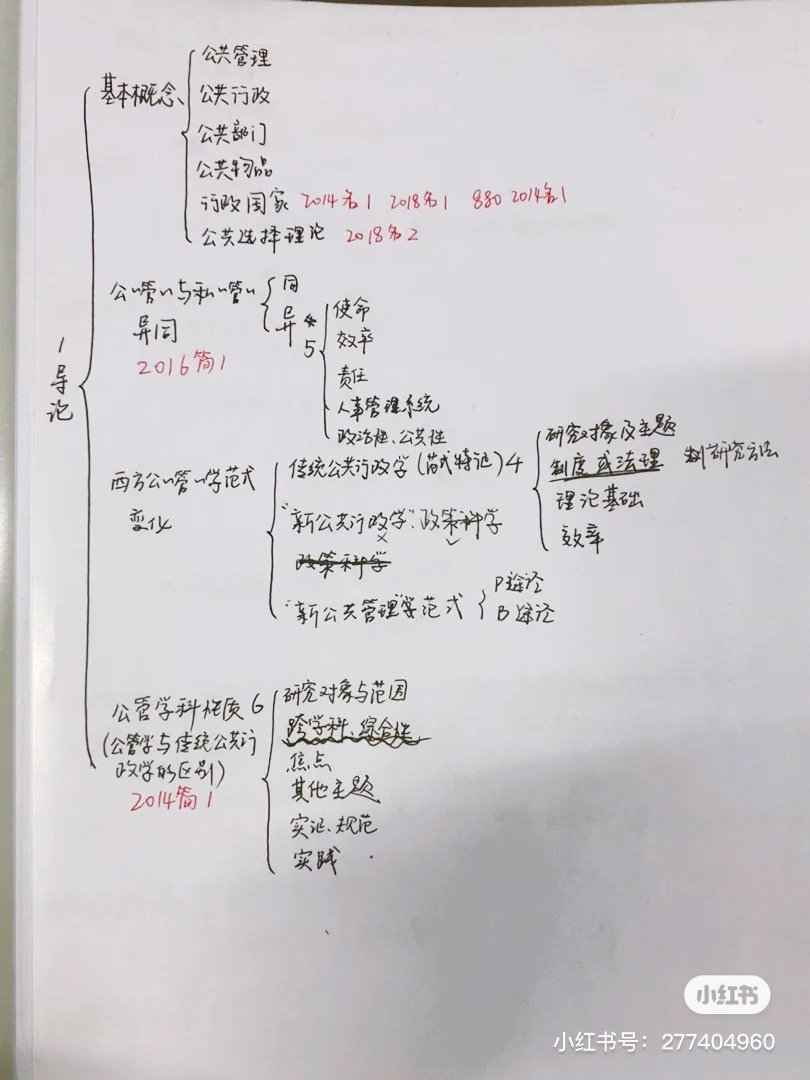 1 导论
基本概念、
公共管理
公共行政
公共部门
公共物品
行政国家 2014名1 2018名1 880 2014名1
公共选择理论 2018名2
公"管"与私"管"
异同
2016简1
同
异 5
使命
效率
责任
人事管理系统
政治性、公共性
西方公"管"学范式
变化
传统公共行政学(范式特征)4
研究对象及主题
制度或法理 研究方法
理论基础
效率
"新公共行政学":政策科学
政策科学
"新公共管理"学范式
P途径
B途径
公管学科性质6
(公管学与传统公共行
政学的区别)
2014简1
研究对象与范围
跨学科、综合性
焦点
其他主题
实证、规范
实践
小红书
小红书号:277404960